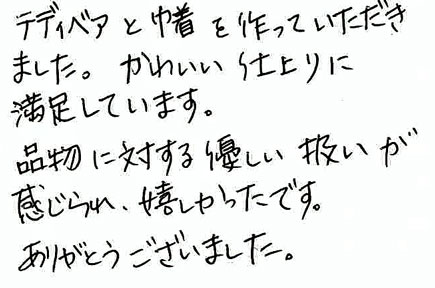 テディベアと巾着を作っていただき
ました。かわいい仕上りに
満足しています。
品物に対する優しい扱いが
感じられ、嬉しかったです。
ありがとうございました。